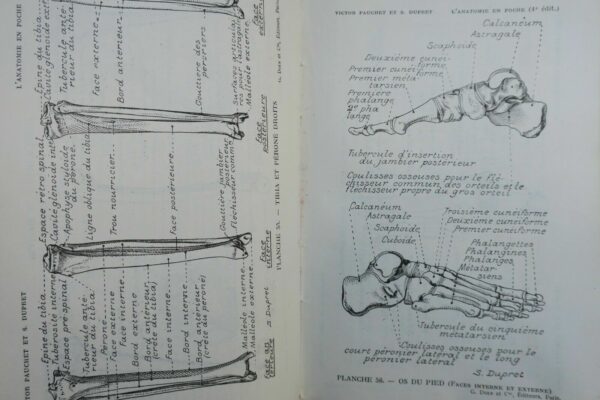 L'ANATOMIE EN POCHE
VICTOR PAUCHET ET S. DUPRET
Épine du tibia
Cavité glénoïde externe
Tubercule antérieur
du tibia
Face externe
Bord antérieur
Gouttière des
péroniers
Surfaces articulaires
pour l'astragale
Malléole externe
face
externe
G. Doin et Cie, Éditeurs
Espace rétro spinal
Cavité glénoïde int
Apophyse styloïde
du péroné.
Ligne oblique du tibia
Trou nourricier
Face postérieure
Gouttière jambier
postérieur
fléchisseur commun
face
postérieure
PLANCHE 55. — TIBIA ET PÉRONÉ DROITS
Épine du tibia
Tubérosité interne
Espace pré-spinal
Tubercule anté-
rieur du tibia
Péroné
Face externe
Face interne
Bord externe
Bord antérieur
(crête du tibia)
Face interne
Bord interne
Bord antérieur
(crête du péroné)
Malléole interne
Malléole externe
face
interne
S. Dupret
VICTOR PAUCHET ET S. DUPRET
L'ANATOMIE EN POCHE (4e édit.)
Calcanéum
Astragale
Scaphoïde
Deuxième cunéi
forme
Premier cunéiforme
Premier méta
tarsien
Première
phalange
2e pha
lange
Tubercule d'insertion
du jambier postérieur
Coulisses osseuses pour le Flé-
chisseur commun des orteils et le
fléchisseur propre du gros orteil
Calcanéum
Astragale
Scaphoïde
Cuboïde
Troisième cunéiforme
Deuxième cunéiforme
Premier cunéiforme
Phalangettes
Phalangines
Phalanges
Métatar
siens
Tubercule du cinquième
métatarsien
Coulisses osseuses pour le
court péronier latéral et le long
péronier latéral
S. Dupret
PLANCHE 56. — OS DU PIED (FACES INTERNE ET EXTERNE)
G. Doin et Cie, Éditeurs, Paris.